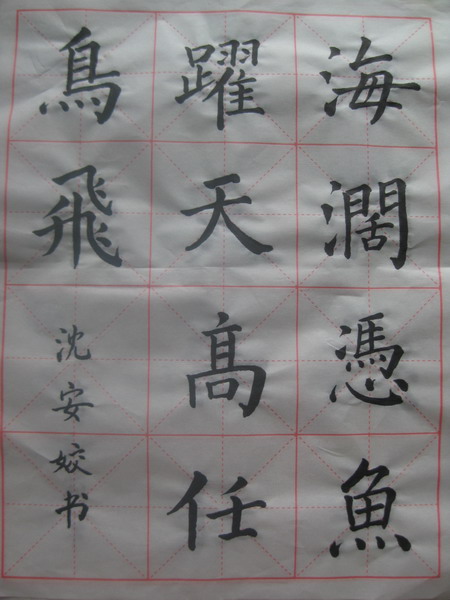 海濶憑魚
躍天高任
鳥飛
沈安姣书